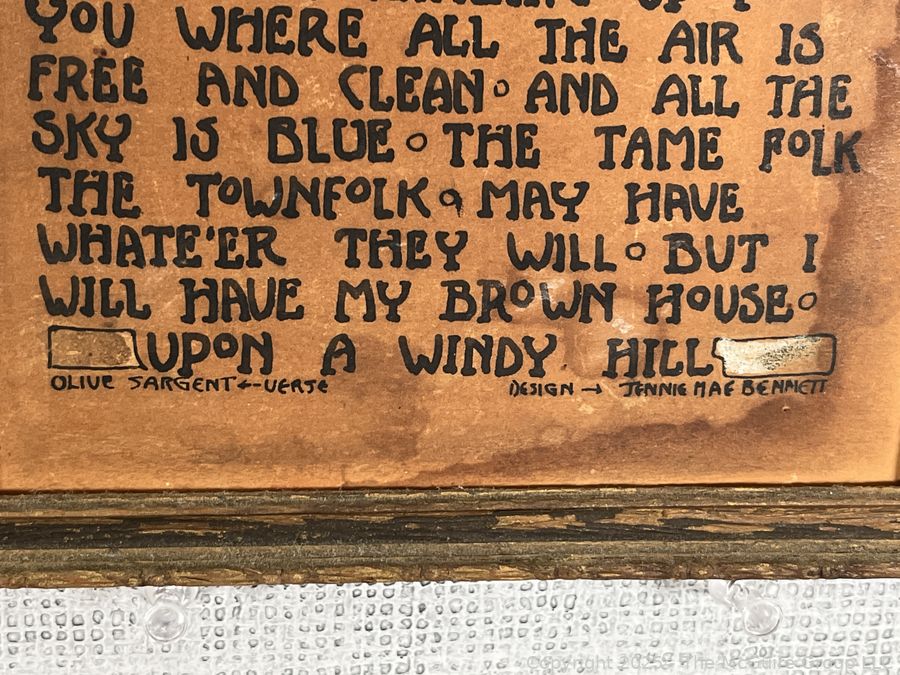 UP
YOU WHERE ALL THE AIR IS
FREE AND CLEAN · AND ALL THE
SKY IS BLUE · THE TAME FOLK
THE TOWNFOLK, MAY HAVE
WHATE'ER THEY WILL · BUT I
WILL HAVE MY BROWN HOUSE ·
UPON A WINDY HILL
OLIVE SARGENT ← VERSE
DESIGN → JENNIE MAE BENNETT
Copyright 2025 - The McGuire Group LLC